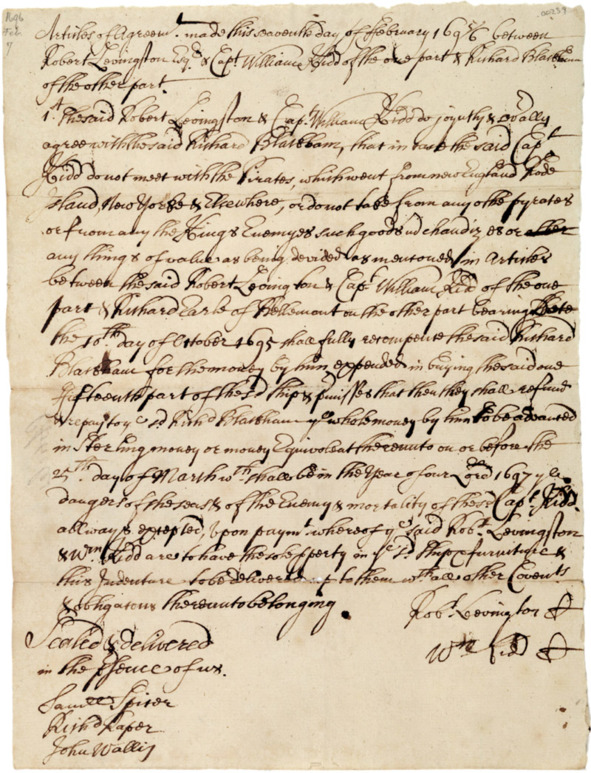 1696
Feb.
7
00259
Articles of Agreemt. made this seaventh day of February 1695/6 between
Robert Levingston Esqr. & Capt. William Kidd of the one part & Richard Blackham
of the other part.
1st. The said Robert Levingston & Capt. William Kidd do joyntly & sevally
agree with the said Richard Blackham, that in case the said Capt.
Kidd do not meet with the Pirates, which went from new England Rode
Island, New Yorke & Elsewhere, or do not take from any other pyrates
or from any the Kings Enemyes such goods m'chandizes or other
any things of value as being devided as mentoned in Articles
between the said Robert Levington & Capt. William Kid of the one
part & Richard Earle of Bellemont on the other part bearing Date
the 10th day of October 1695 shall fully recompence the said Richard
Blackham for the money by him expended in buying the said one
fifteenth part of the sd. ship & p'misses that then they shall refund
& repay to ye sd. Richd. Blackham ye whole money by him to be advanced
in Sterling money or money Equivolent thereunto on or before the
25th. day of March wch. shall be in the Year of our Lord 1697 ye
dangers of the seas & of the Enemy & mortality of the Capt. Kidd
allways excepted, upon paymt. whereof ye said Robt. Levingston
& Wm. Kidd are to have the sole p'perty in ye sd. ship & furniture &
this Indenture to be delivered up to them wth. all other Covents
& obligatons thereunto belonging.
Robt. Levington
Wm Kidd
Sealed & delivered
in the p'sence of us.
Samll Spicer
Richd Raper
John Wallis